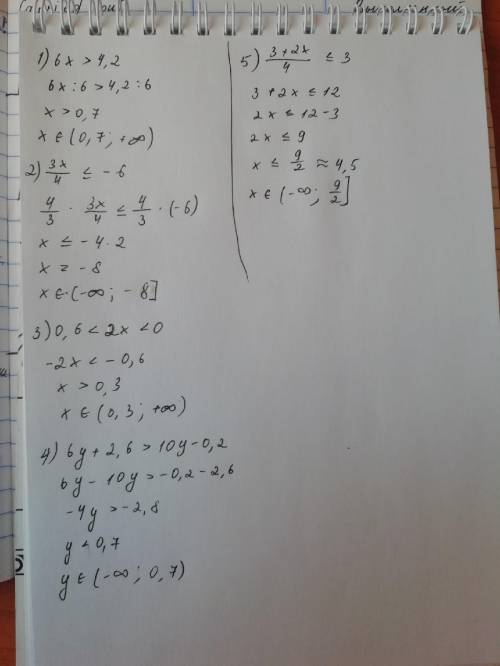 1) 6x > 4,2
6x : 6 > 4,2 : 6
x > 0,7
x ∈ (0,7; +∞)
2) 3x/4 ≤ -6
4/3 · 3x/4 ≤ 4/3 · (-6)
x ≤ -4 · 2
x = -8
x ∈ (-∞; -8]
3) 0,6 < 2x < 0
-2x < -0,6
x > 0,3
x ∈ (0,3; +∞)
4) 6y + 2,6 > 10y - 0,2
6y - 10y > -0,2 - 2,6
-4y > -2,8
y < 0,7
y ∈ (-∞; 0,7)
5) (3 + 2x)/4 ≤ 3
3 + 2x ≤ 12
2x ≤ 12 - 3
2x ≤ 9
x ≤ 9/2 ≈ 4,5
x ∈ (-∞; 9/2]